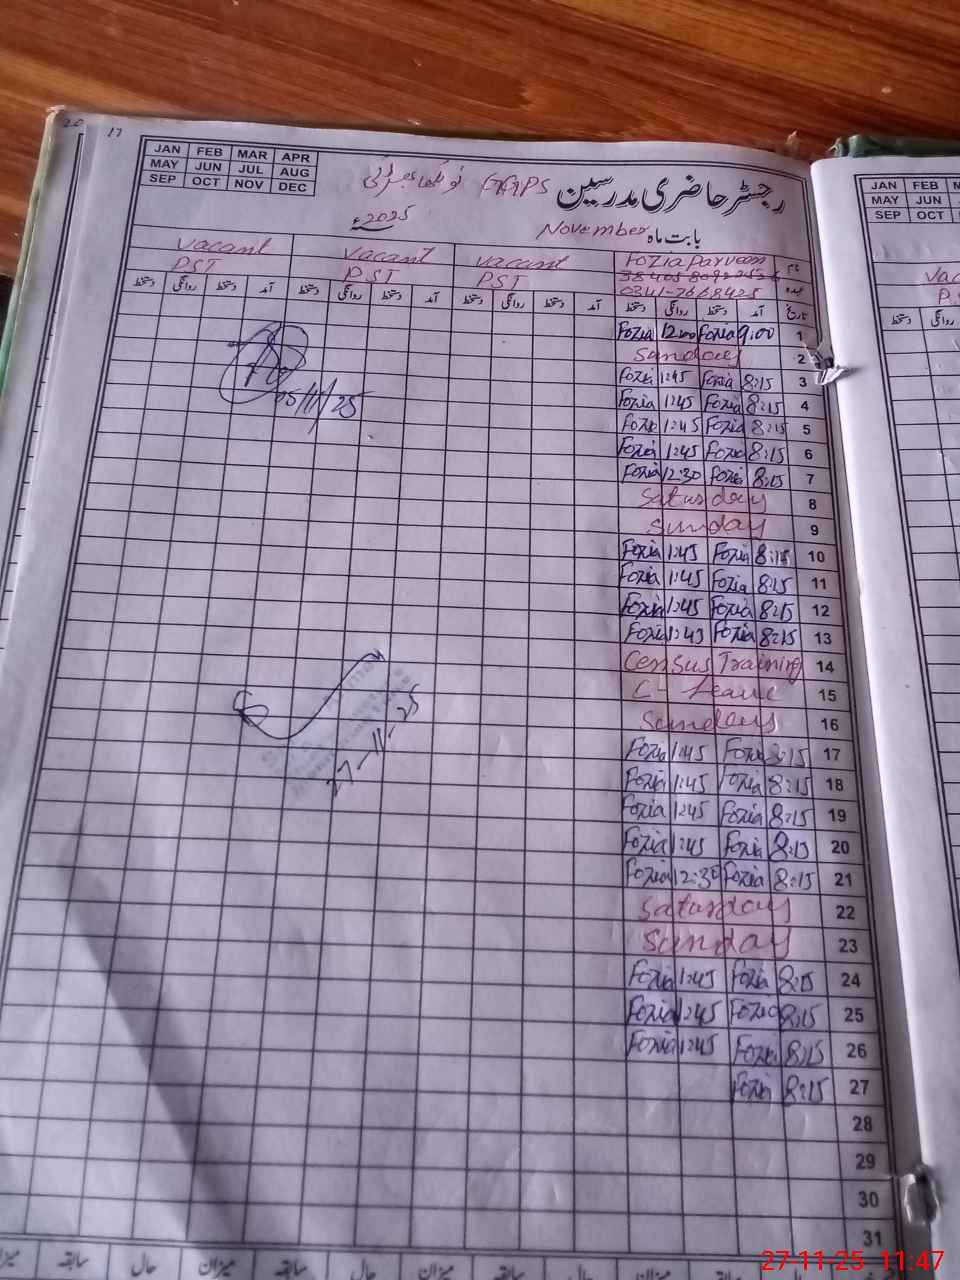 20
17
JAN FEB MAR APR
MAY JUN JUL AUG
SEP OCT NOV DEC
رجسٹر حاضری مدرسین
2025ء
بابت ماہ November
vacant vacant vacant Fozia Parveen نام
PST PST PST
0341-7668425 عہدہ
دستخط روانگی دستخط آمد دستخط روانگی دستخط آمد دستخط روانگی دستخط آمد دستخط روانگی دستخط آمد تاریخ
Fozia 12:00 Fozia 9:00 1
Sunday 2
Fozia 1:45 Fozia 8:15 3
Fozia 1:45 Fozia 8:15 4
Fozia 1:45 Fozia 8:15 5
Fozia 1:45 Fozia 8:15 6
Fozia 12:30 Fozia 8:15 7
Saturday 8
Sunday 9
Fozia 1:45 Fozia 8:15 10
Fozia 1:45 Fozia 8:15 11
Fozia 1:45 Fozia 8:15 12
Fozia 1:45 Fozia 8:15 13
Census Training 14
C- Leave 15
Sunday 16
Fozia 1:45 Fozia 8:15 17
Fozia 1:45 Fozia 8:15 18
Fozia 1:45 Fozia 8:15 19
Fozia 1:45 Fozia 8:15 20
Fozia 12:30 Fozia 8:15 21
Saturday 22
Sunday 23
Fozia 1:45 Fozia 8:15 24
Fozia 1:45 Fozia 8:15 25
Fozia 1:45 Fozia 8:15 26
Fozia 8:15 27
28
29
30
31
05/11/25
27-11-25
میزان حال سابقہ میزان حال سابقہ میزان حال سابقہ میزان حال سابقہ
JAN FEB
MAY JUN
SEP OCT
27-11-25 11:47